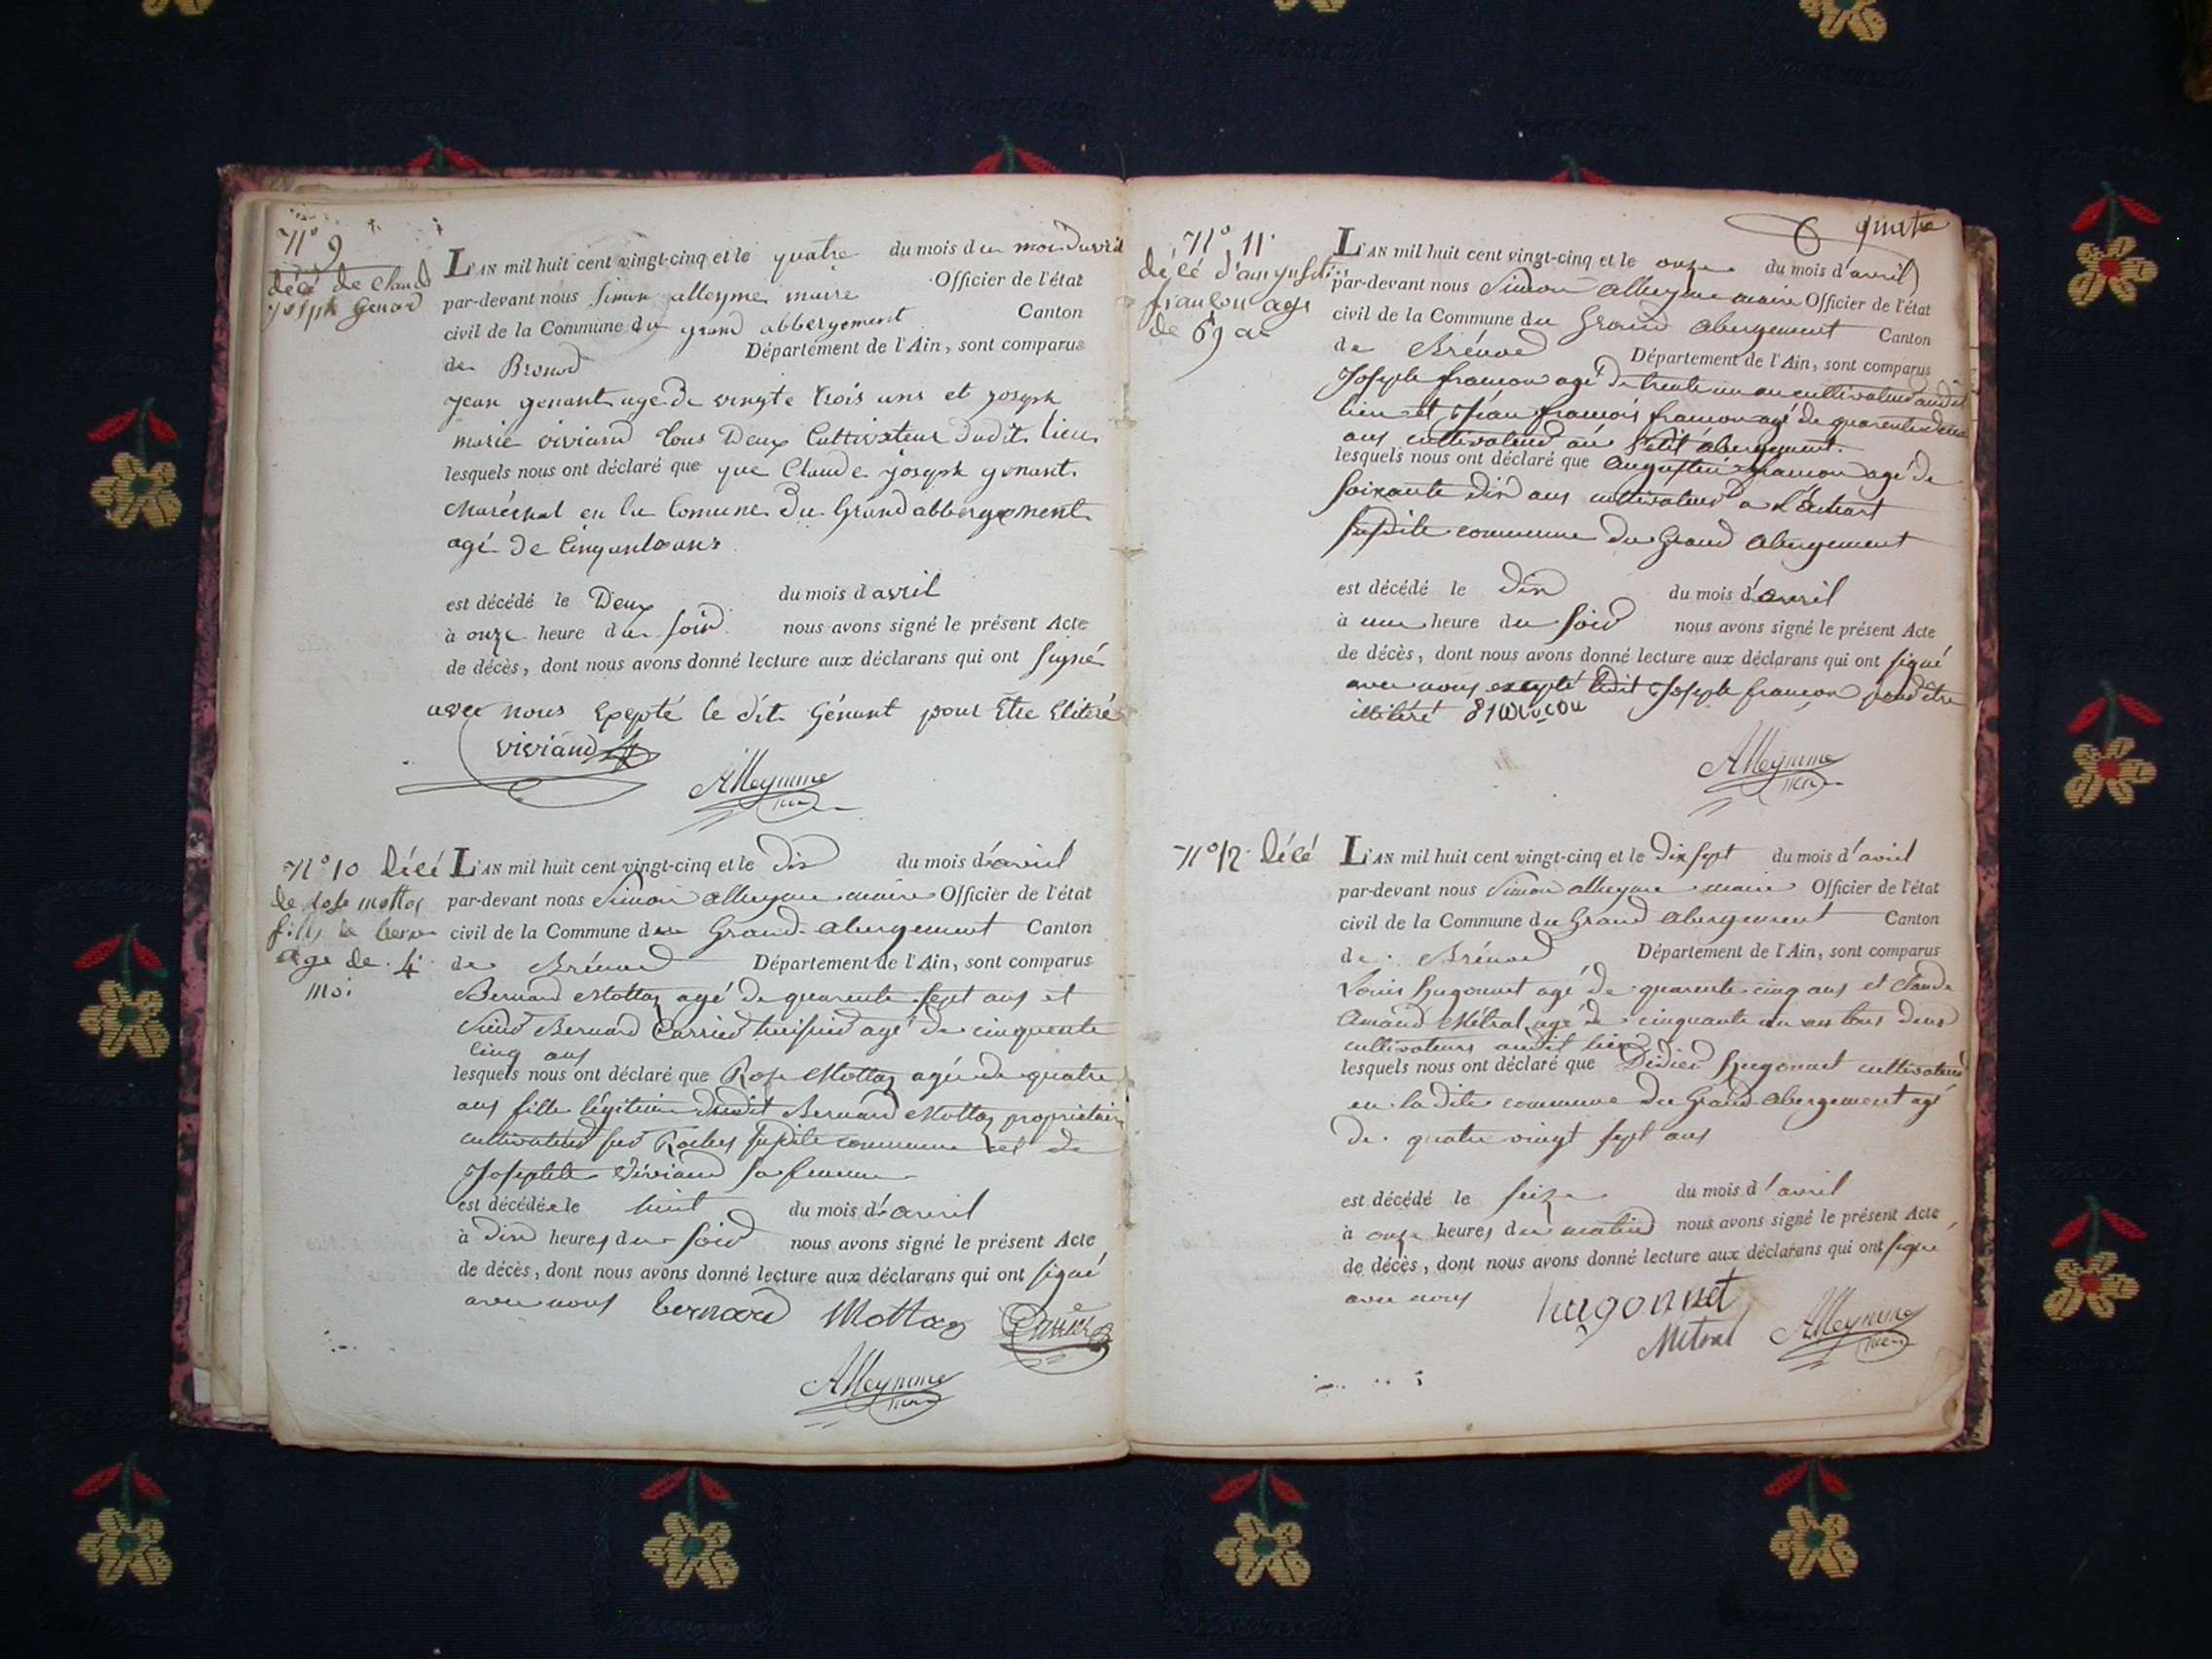 N° 9
décé de Claude
joseph Genod
L'AN mil huit cent vingt-cinq et le quatre du mois du moi davril
par-devant nous Simon alleyme maire Officier de l'état
civil de la Commune du grand abbergement Canton
de Brenod Département de l'Ain, sont comparus
jean genant agé de vingte trois ans et joseph
marie viviand tous Deux Cultivateur dudit lieu
lesquels nous ont déclaré que que Claude joseph genant
Maréchal en la Comune du Grand abbergement
agé de Cinquante ans
est décédé le Deux du mois d avril
à onze heure du soir nous avons signé le présent Acte
de décès, dont nous avons donné lecture aux déclarans qui ont signé
avec nous Exepté le dit Génant pour Etre Eliteré
viviand
Alleymme
N° 10 décé
de Rose mottaz
fille a berna
age de 4
moi
L'AN mil huit cent vingt-cinq et le dix du mois d'avril
par-devant nous Simon alleyme maire Officier de l'état
civil de la Commune du Grand-abergement Canton
de Brénod Département de l'Ain, sont comparus
Bernard Mottaz agé de quarente sept ans et
Sieur Bernard Carrier huissier agé de cinquente
cinq ans
lesquels nous ont déclaré que Rose Mottaz agée de quatre
ans fille légitime dudit Bernard Mottaz propriétaire
cultivateur sur Roches susdite commune et de
Josephte Viviand sa femme
est décédée le huit du mois d'avril
à dix heures du soir nous avons signé le présent Acte
de décès, dont nous avons donné lecture aux déclarans qui ont signé
avec nous bernard Mottaz Carrier
Alleymme
6 quatre
N° 11
décé d'augusti
françon age
de 69 an
L'AN mil huit cent vingt-cinq et le onze du mois d'avril
par-devant nous Simon Alleyme maire Officier de l'état
civil de la Commune du Grand abergement Canton
de Brénod Département de l'Ain, sont comparus
Joseph françon agé de trente un an cultivateur audit
lieu et Jean françois françon agé de quarente deux
ans cultivateur au Petit abergement.
lesquels nous ont déclaré que Augustin françon agé de
soixante dix ans cultivateur a
susdite commune du Grand abergement
est décédé le dix du mois d'avril
à une heure du soir nous avons signé le présent Acte
de décès, dont nous avons donné lecture aux déclarans qui ont signé
avec nous excepté ledit Joseph françon pour être
illitéré
Alleymme
N° 12 décé
L'AN mil huit cent vingt-cinq et le dix sept du mois d'avril
par-devant nous Simon alleyme maire Officier de l'état
civil de la Commune du Grand abergement Canton
de Brénod Département de l'Ain, sont comparus
Louis hugonnet agé de quarente cinq ans et Claude
Amand Métral agé de cinquante un ans tous deux
cultivateurs audit lieu
lesquels nous ont déclaré que Didier hugonnet cultivateur
en la dite commune du Grand-abergement agé
de quatre vingt sept ans
est décédé le seize du mois d'avril
à onze heures du matin nous avons signé le présent Acte
de décès, dont nous avons donné lecture aux déclarans qui ont signé
avec nous hugonnet
Métral Alleymme